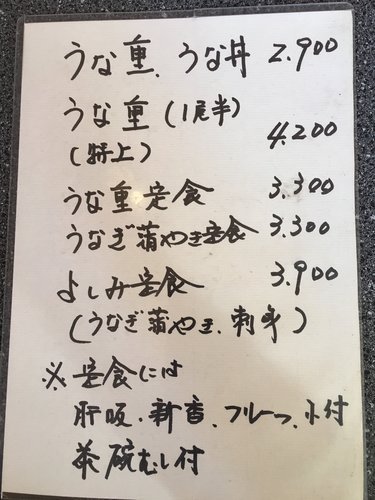 うな重、うな丼 2.900
うな重(1尾半)
(特上) 4.200
うな重定食 3.300
うなぎ蒲やき定食 3.300
よしみ定食 3.900
(うなぎ蒲やき、刺身)
※定食には
肝吸、新香、フルーツ、小付
茶碗むし付